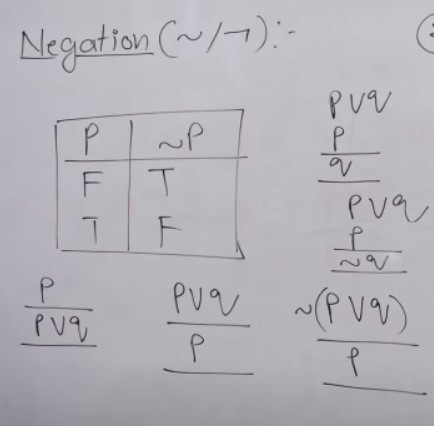 Negation (~/¬):-
P ~P
F T
T F
P∨q
P
q
P∨q
P
~q
P
P∨q
P∨q
P
~(P∨q)
P